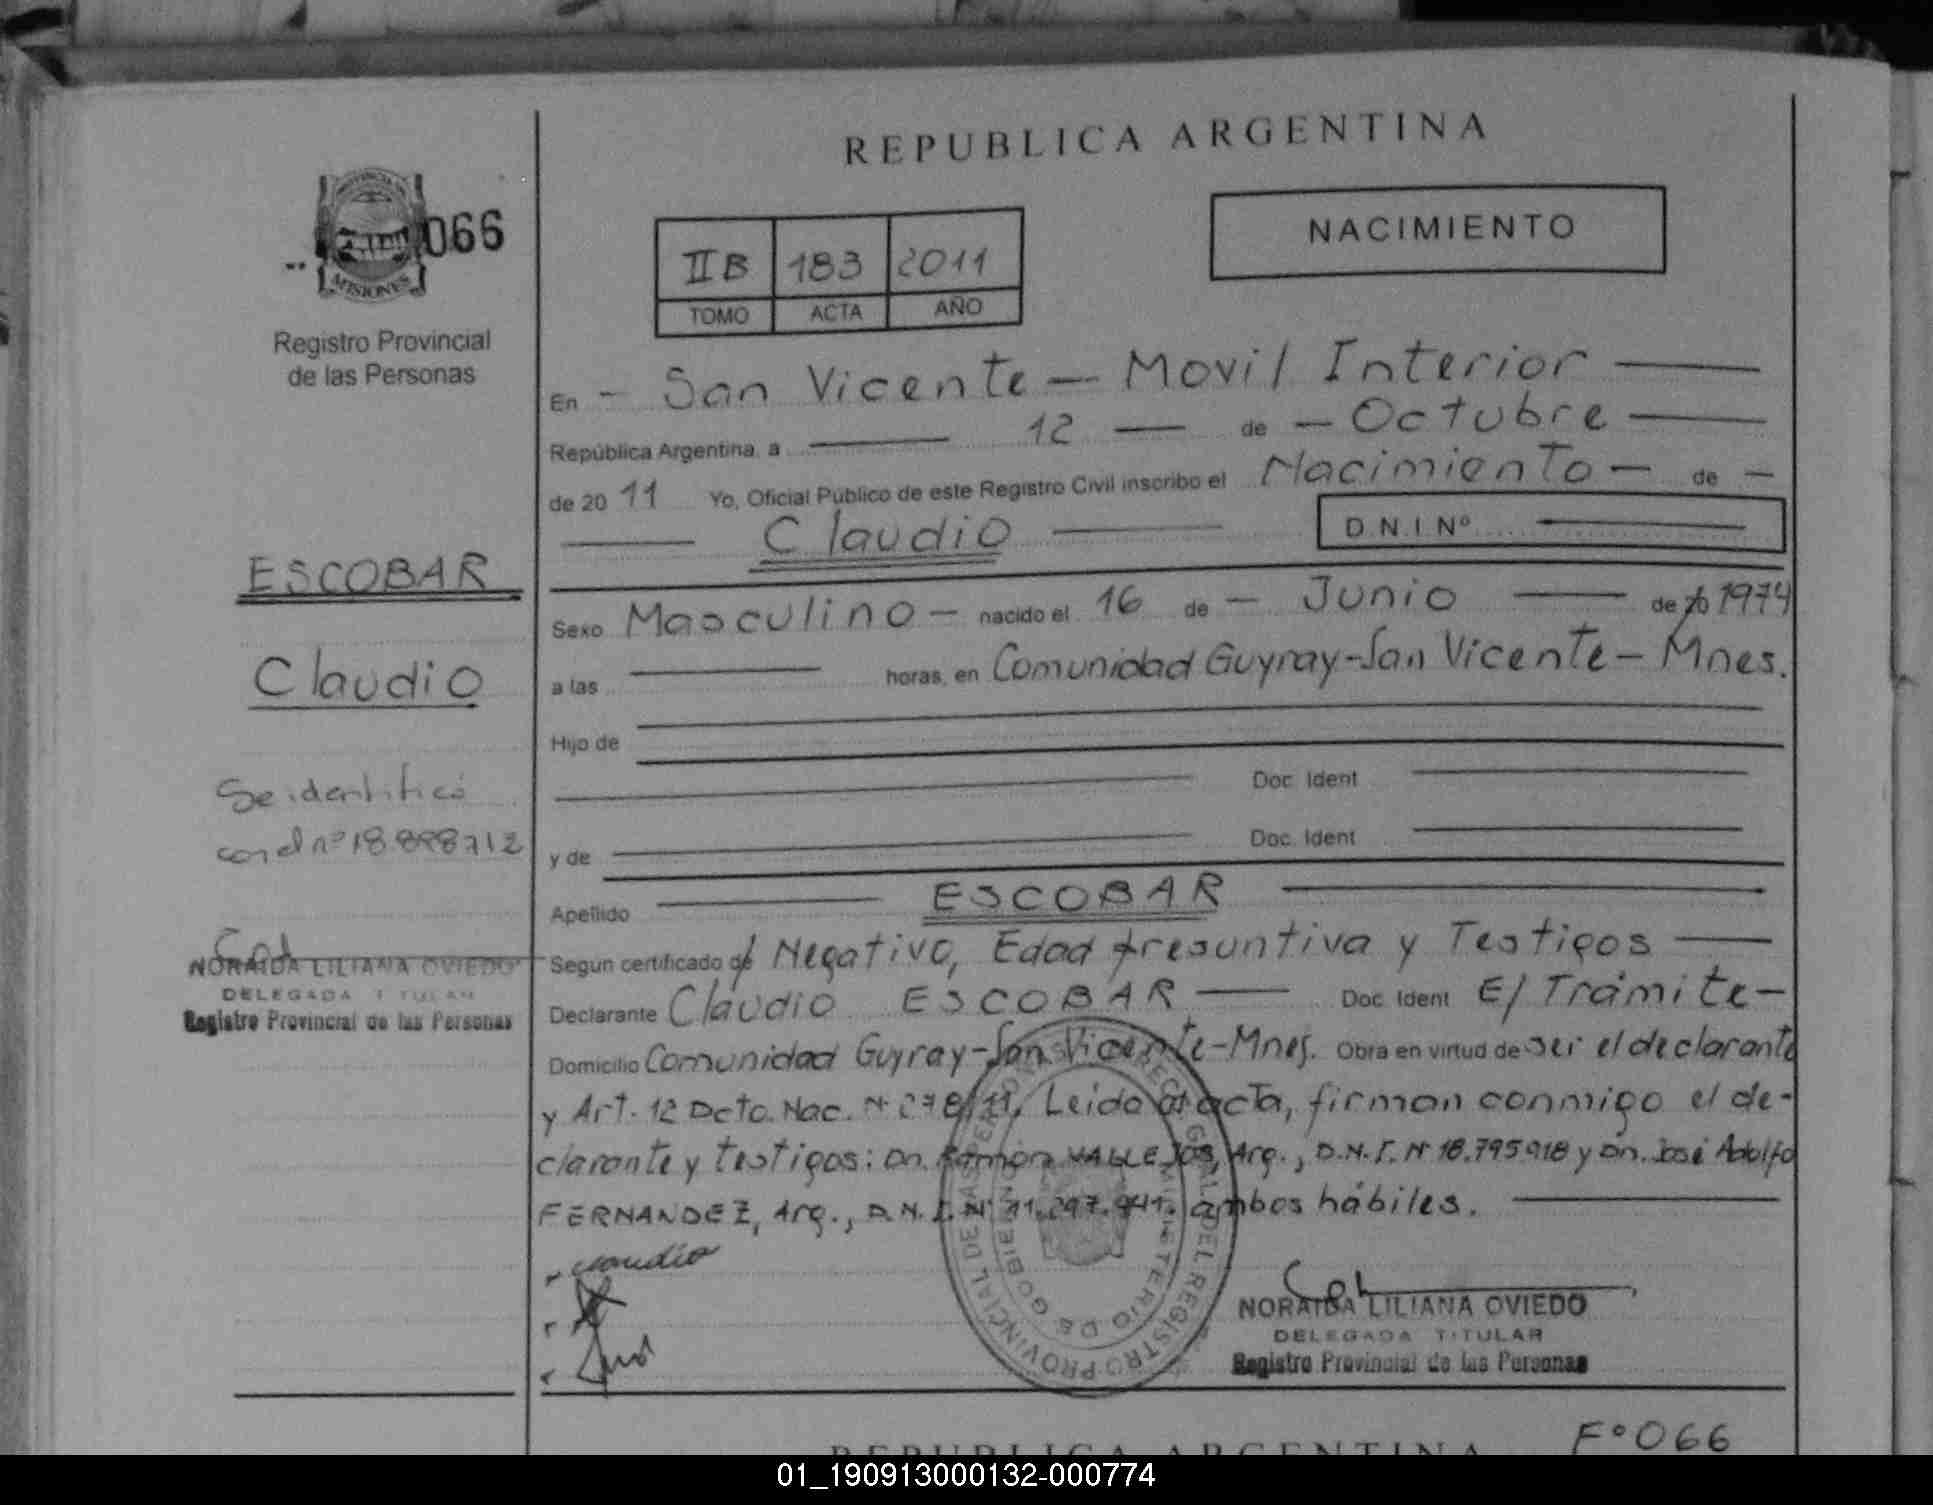 REPUBLICA ARGENTINA
PROVINCIA DE
MISIONES
066
Registro Provincial
de las Personas
NACIMIENTO
II B 183 2011
TOMO ACTA AÑO
En - San Vicente - Movil Interior
República Argentina, a 12 de - Octubre
de 20 11 Yo, Oficial Público de este Registro Civil inscribo el Nacimiento - de -
Claudio
D.N.I. Nº
ESCOBAR
Claudio
Se identificó
con el nº 18.898712
NORAIDA LILIANA OVIEDO
DELEGADA TITULAR
Registro Provincial de las Personas
Sexo Masculino - nacido el 16 de - Junio de 20 1974
a las horas, en Comunidad Guyray-San Vicente - Mnes.
Hijo de
Doc. Ident
y de Doc. Ident
Apellido ESCOBAR
Según certificado de Negativo, Edad Presuntiva y Testigos
Declarante Claudio ESCOBAR Doc. Ident E/ Trámite -
Domicilio Comunidad Guyray-San Vicente-Mnes. Obra en virtud de ser el declarante
y Art. 12 Dcto. Nac. Nº 278/11. Leida el acta, firman conmigo el de-
clarante y testigos: Dn. Ramón VALLEJOS, Arg., D.N.I. Nº 18.795918 y Dn. José Adolfo
FERNANDEZ, Arg., D.N.I. Nº 11.297.941. ambos hábiles.
Claudio
NORAIDA LILIANA OVIEDO
DELEGADA TITULAR
Registro Provincial de las Personas
REGISTRO PROVINCIAL DE LAS PERSONAS
MINISTERIO DE GOBIERNO
Fº 066
REPUBLICA ARGENTINA
01_190913000132-000774